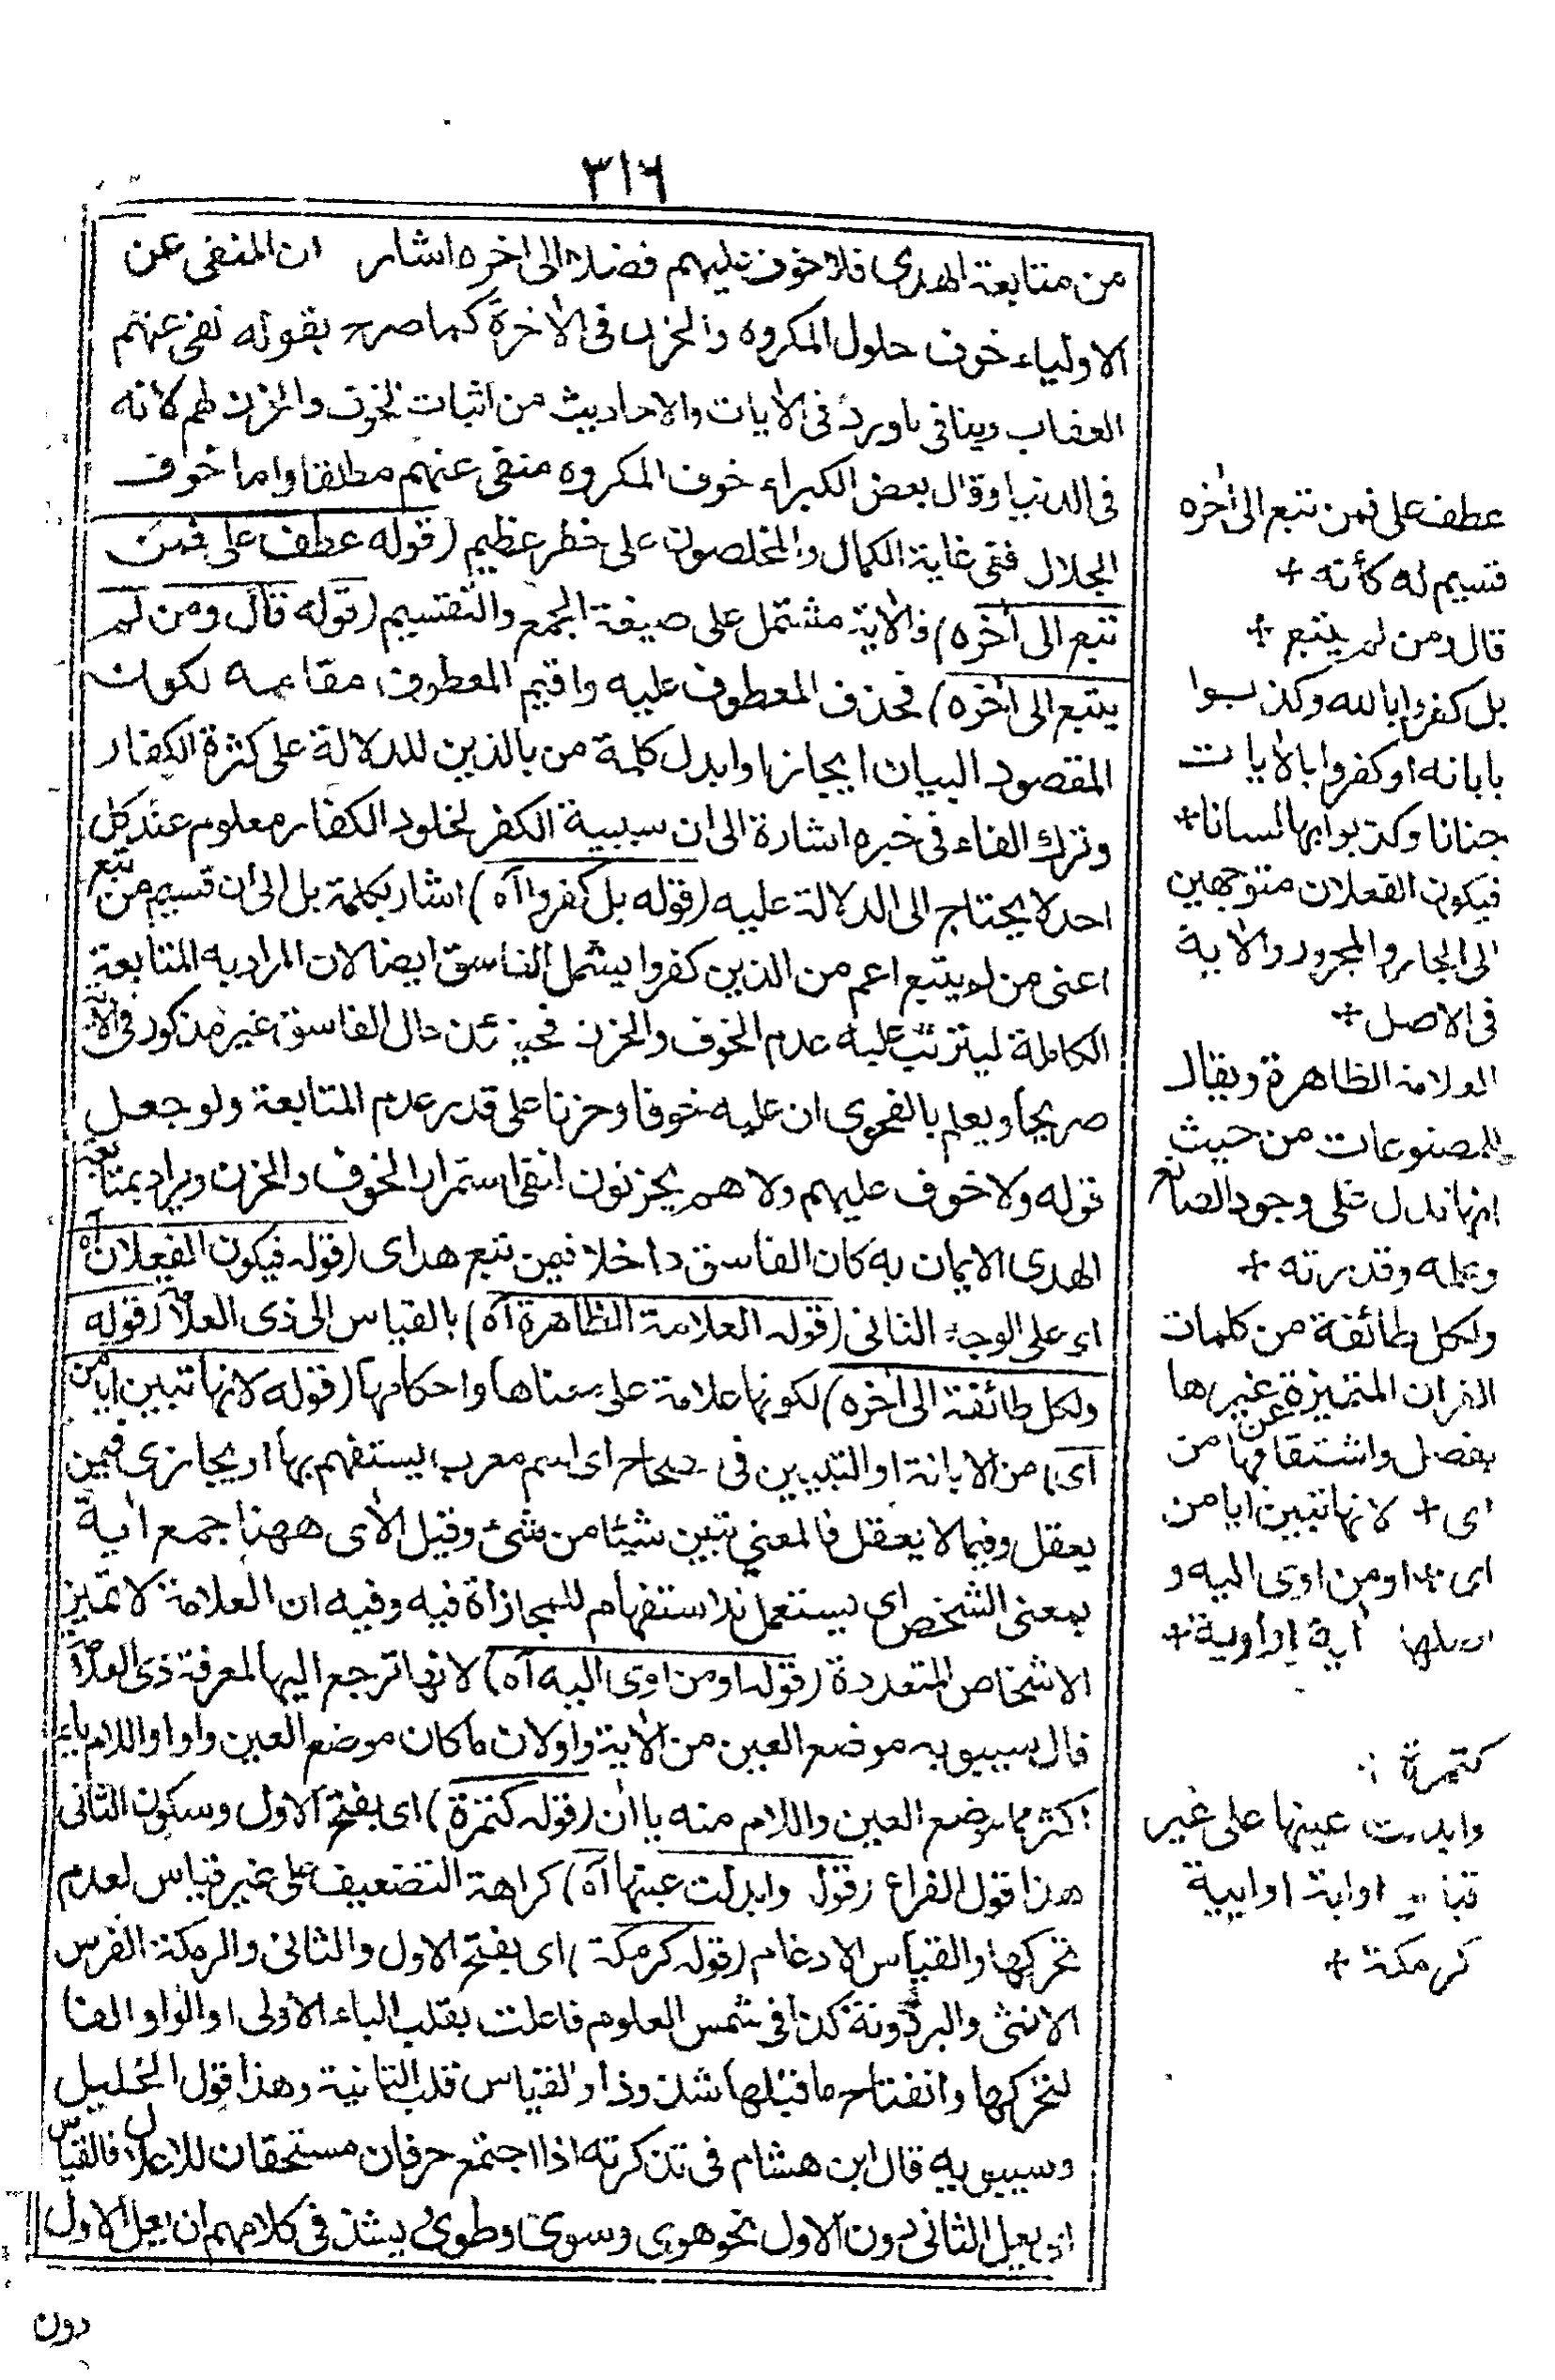 ٣١٦
من متابعة الهدى فلا خوف عليهم فضلا الى اخره اشار ان المنفى عن
الاولياء خوف حلول المكروه والحزن فى الاخرة كما صرح بقوله نفى عنهم
العقاب وينافى ما ورد فى الأيات والاحاديث من اثبات الخوف والحزن لهم لانه
فى الدنيا وقال بعض الكبراء خوف المكروه منفى عنهم مطلقا واما خوف
الجلال ففى غاية الكمال والمخلصون على خطر عظيم (قوله عطف على فمن
تبع الى أخره) فالأية مشتمل على صيغة الجمع والتقسيم (قوله قال ومن لم
يتبع الى أخره) فحذف المعطوف عليه واقيم المعطوف مقامه لكون
المقصود البيان ايجازا وابدل كلمة من بالذين للدلالة على كثرة الكفار
وترك الفاء فى خبره اشارة الى ان سببية الكفر لخلود الكفار معلوم عند كل
احد لا يحتاج الى الدلالة عليه (قوله بل كفروا اه) اشار بكلمة بل الى ان قسيم من تبع
اعنى من لم يتبع اعم من الذين كفروا يشمل الفاسق ايضا لان المراد به المتابعة
الكاملة ليترتب عليه عدم الخوف والحزن فحينئذ حال الفاسق غير مذكور فى الأية
صريحا ويعلم بالفحوى ان عليه خوفا وحزنا على قدر عدم المتابعة ولو جعل
قوله ولا خوف عليهم ولا هم يحزنون انتفى استمرار الخوف والحزن ويراد بمتابعة
الهدى الايمان به كان الفاسق داخلا فيمن تبع هداى (قوله فيكون الفعلان اه
اى على الوجه الثانى (قوله العلامة الظاهرة اه) بالقياس الى ذى العلامة (قوله
ولكل طائفة الى أخره) لكونها علامة على معناها واحكامها (قوله لانها تبين ايا من
اى) من الابانة او التبيين فى صحاح اى اسم معرب يستفهم بها او يجازى فيمن
يعقل وفيما لا يعقل فالمعنى تبين شيئا من شئ وقيل الأى ههنا جمع أية
بمعنى الشخص اى يستعمل ندا استفهام للمجازاة فيه وفيه ان العلامة لا تميز
الاشخاص المتعددة (قوله او من اوى اليه اه) لانها ترجع اليها لمعرفة ذى العلامة
قال سيبويه موضع العين من الأية واو لان ما كان موضع العين واوا واللام ياء
اكثر مما موضع العين واللام منه ياان (قوله كتمرة) اى بفتح الاول وسكون الثانى
هذا قول الفراء (قوله وابدلت عينها اه) كراهة التضعيف على غير قياس لعدم
تحركها والقياس الادغام (قوله كرمكة) اى بفتح الاول والثانى والرمكة الفرس
الانثى والبرذونة كذا فى شمس العلوم فاعلت بقلب الياء الأولى او الواو الفا
لتحركها وانفتاح ما قبلها شذوذا والقياس قلب الثانية وهذا قول الخليل
وسيبويه قال ابن هشام فى تذكرته اذا اجتمع حرفان مستحقان للاعلال فالقياس
ان يعل الثانى دون الاول نحو هوى وسوى وطوى يشذ فى كلامهم ان يعل الاول
دون
عطف على فمن تبع الى أخره
قسيم له كأنه +
قال ومن لم يتبع +
بل كفروا بالله وكذبوا
باياته او كفروا بالأيات
جنانا وكذبوا بها لسانا +
فيكون الفعلان متوجهين
الى الجار والمجرور والأية
فى الاصل +
العلامة الظاهرة ويقال
للمصنوعات من حيث
انها تدل على وجود الصانع
وعلمه وقدرته +
ولكل طائفة من كلمات
القران المتميزة عن غيرها
بفصل واشتقاقها من
اى + لانها تبين ايا من
اى + او من اوى اليه و
اصلها أية او اوية +
كتمرة
وابدلت عينها على غير
قياس او اية او ايية
كرمكة +